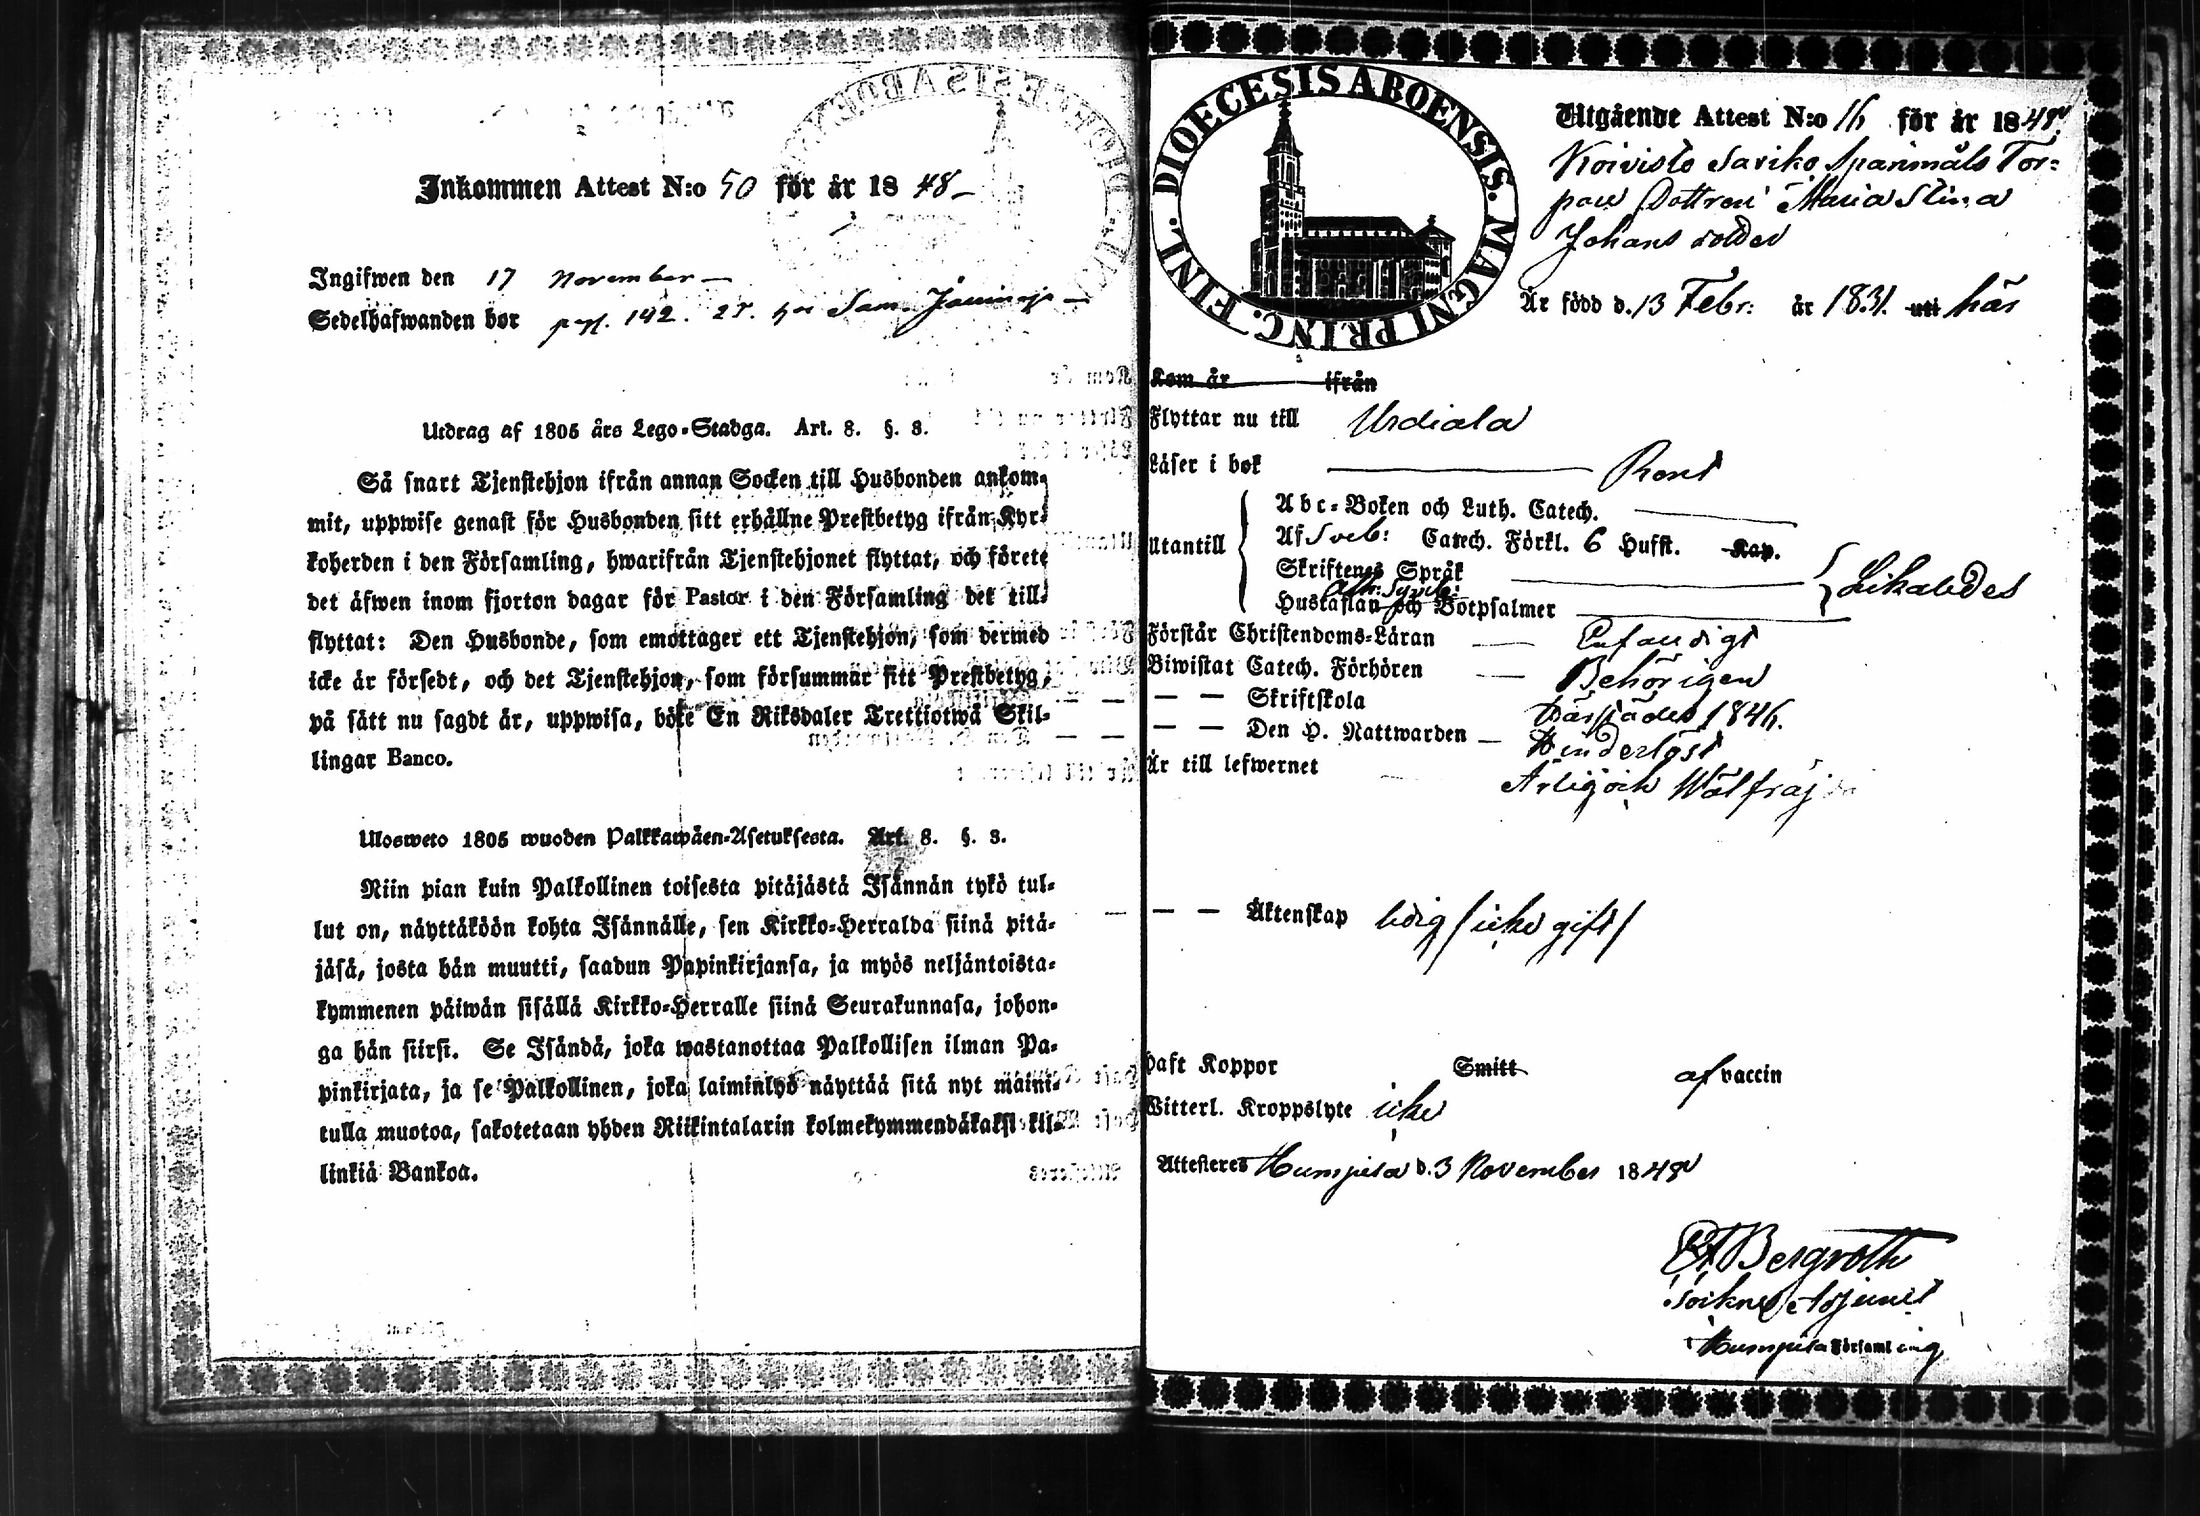 Inkommen Attest N:o 50 för år 1848
Ingifwen den 17 November
Sedelhafwanden bor pag. 192. 27. hos Sam.
Utdrag af 1805 års Lego-Stadga. Art. 8. §. 3.
Så snart Tjenstehjon ifrån annan Socken till Husbonden ankom-
mit, uppwise genast för Husbonden sitt erhållne Prestbetyg ifrån Kyr-
koherden i den Församling, hwarifrån Tjenstehjonet flyttat, och förete
det äfwen inom fjorton dagar för Pastor i den Församling det till-
flyttat: Den Husbonde, som emottager ett Tjenstehjon, som dermed
icke är försedt, och det Tjenstehjon, som försummar sitt Prestbetyg,
på sätt nu sagdt är, uppwisa, böte En Riksdaler Trettiotwå Skil-
lingar Banco.
Ulosweto 1805 wuoden Palkkawäen-Asetuksesta. Art. 8. §. 3.
Niin pian kuin Palkollinen toisesta pitäjästä Isännän tykö tul-
lut on, näyttäköön kohta Isännälle, sen Kirkko-Herralda siinä pitä-
jäsä, josta hän muutti, saadun Papinkirjansa, ja myös neljäntoista-
kymmenen päiwän sisällä Kirkko-Herralle siinä Seurakunnasa, johon-
ga hän siirsi. Se Isändä, joka wastanottaa Palkollisen ilman Pa-
pinkirjata, ja se Palkollinen, joka laiminlyö näyttää sitä nyt maini-
tulla muotoa, sakotetaan yhden Riikintalarin kolmekymmendäkaksi kil-
linkiä Bankoa.
FINL. DIOECESIS ABOENSIS. MAGNI PRINC.
Utgående Attest N:o 16 för år 1848
Koivisto Saviko Spanmåls Tor-
pare Dottren Maria Stina
Johans dotter
Är född d. 13 Febr: år 1831. uti här
Kom år ifrån
Flyttar nu till Urdiala
Läser i bok Rent
Utantill
Abc-Boken och Luth. Catech.
Af Sveb: Catech. Förkl. 6 Hufst. Kap.
Skriftenes Språk
Ath: Symb:
Hustaflan och Botpsalmer
Likaledes
Förstår Christendoms-Läran Enfaldigt
Biwistat Catech. Förhören Behörigen
— — Skriftskola 1846.
— — Den H. Nattwarden Hinderlöst
Är till lefwernet Ärlig och Wälfräjdad
— — Äktenskap ledig /icke gift/
Haft Koppor Smitt af vaccin
Witterl. Kroppslyte icke
Attesteres Humpila d. 3 November 1848
Bergroth
Sockne Adjunct
Humpila Församling